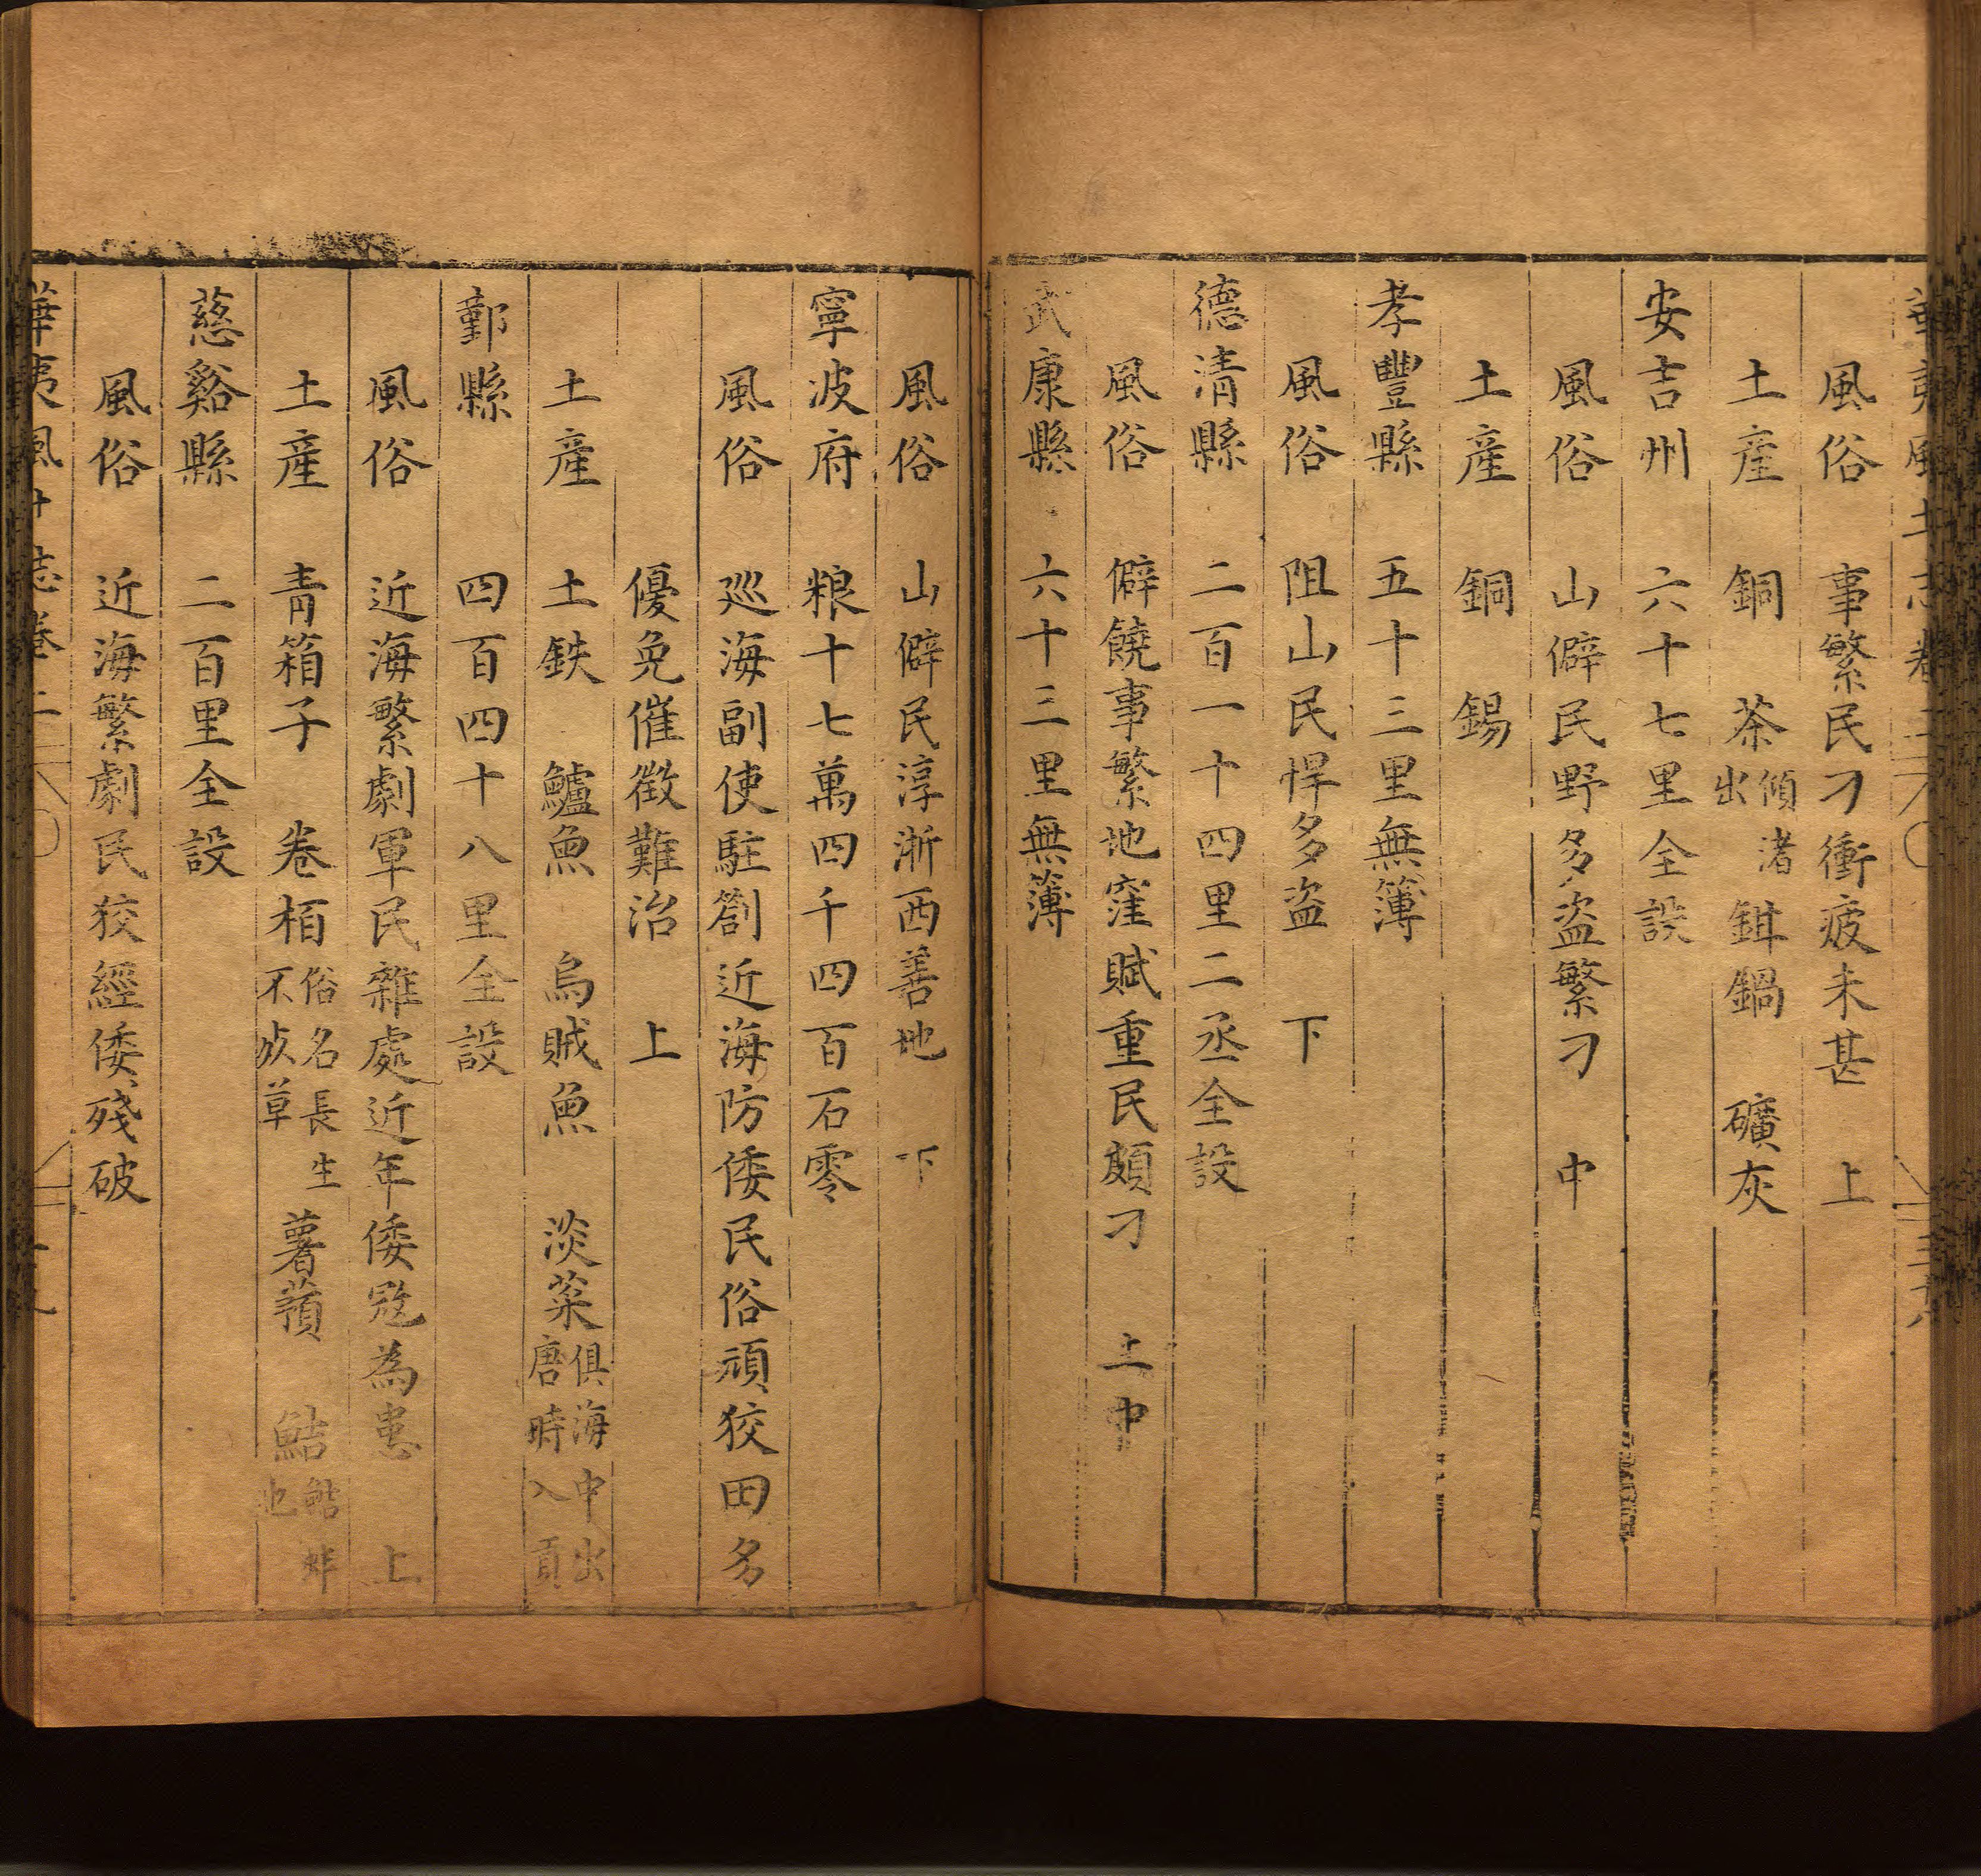 風俗 事繁民刁衝疲未甚 上
土産 銅 茶 傾渚出 鉗鍋 礦灰
安吉州 六十七里全設
風俗 山僻民野多盗繁刁 中
土産 銅 錫
孝豐縣 五十三里無簿
風俗 阻山民悍多盗 下
德清縣 二百一十四里二丞全設
風俗 僻饒事繁地窪賦重民頗刁 上中
武康縣 六十三里無簿
風俗 山僻民淳淅西善地 下
寧波府 粮十七萬四千四百石零
風俗 巡海副使駐劄近海防倭民俗頑狡田多
優免催徴難治 上
土産 土鉄 鱸魚 烏賊魚 淡菜 俱海中出唐時入貢
鄞縣 四百四十八里全設
風俗 近海繁劇軍民雜處近年倭冦為患 上
土産 青箱子 卷栢 俗名長生不灰草 薯蕷 鮚
慈谿縣 二百里全設
風俗 近海繁劇民狡經倭殘破